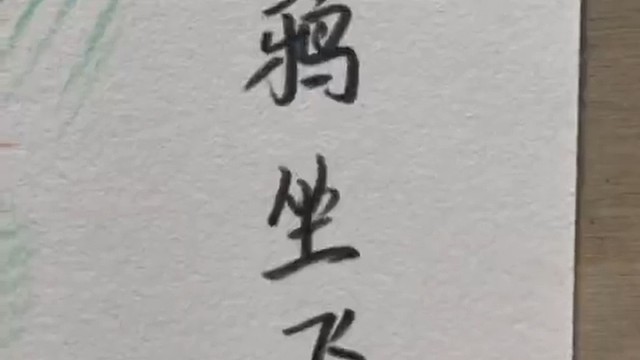 鸦坐飞